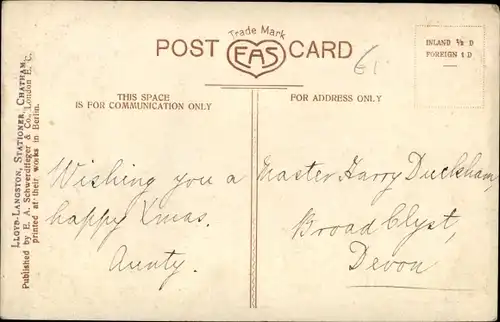 Trade Mark
POST EAS CARD
INLAND ½ D
FOREIGN 1 D
61
THIS SPACE
IS FOR COMMUNICATION ONLY
FOR ADDRESS ONLY
LLOYD-LANGSTON, STATIONER, CHATHAM.
Published by E. A. Schwerdtfeger & Co., London E. C.
printed at their works in Berlin.
Wishing you a
happy Xmas.
Aunty.
Master Harry Duckham,
Broad Clyst,
Devon